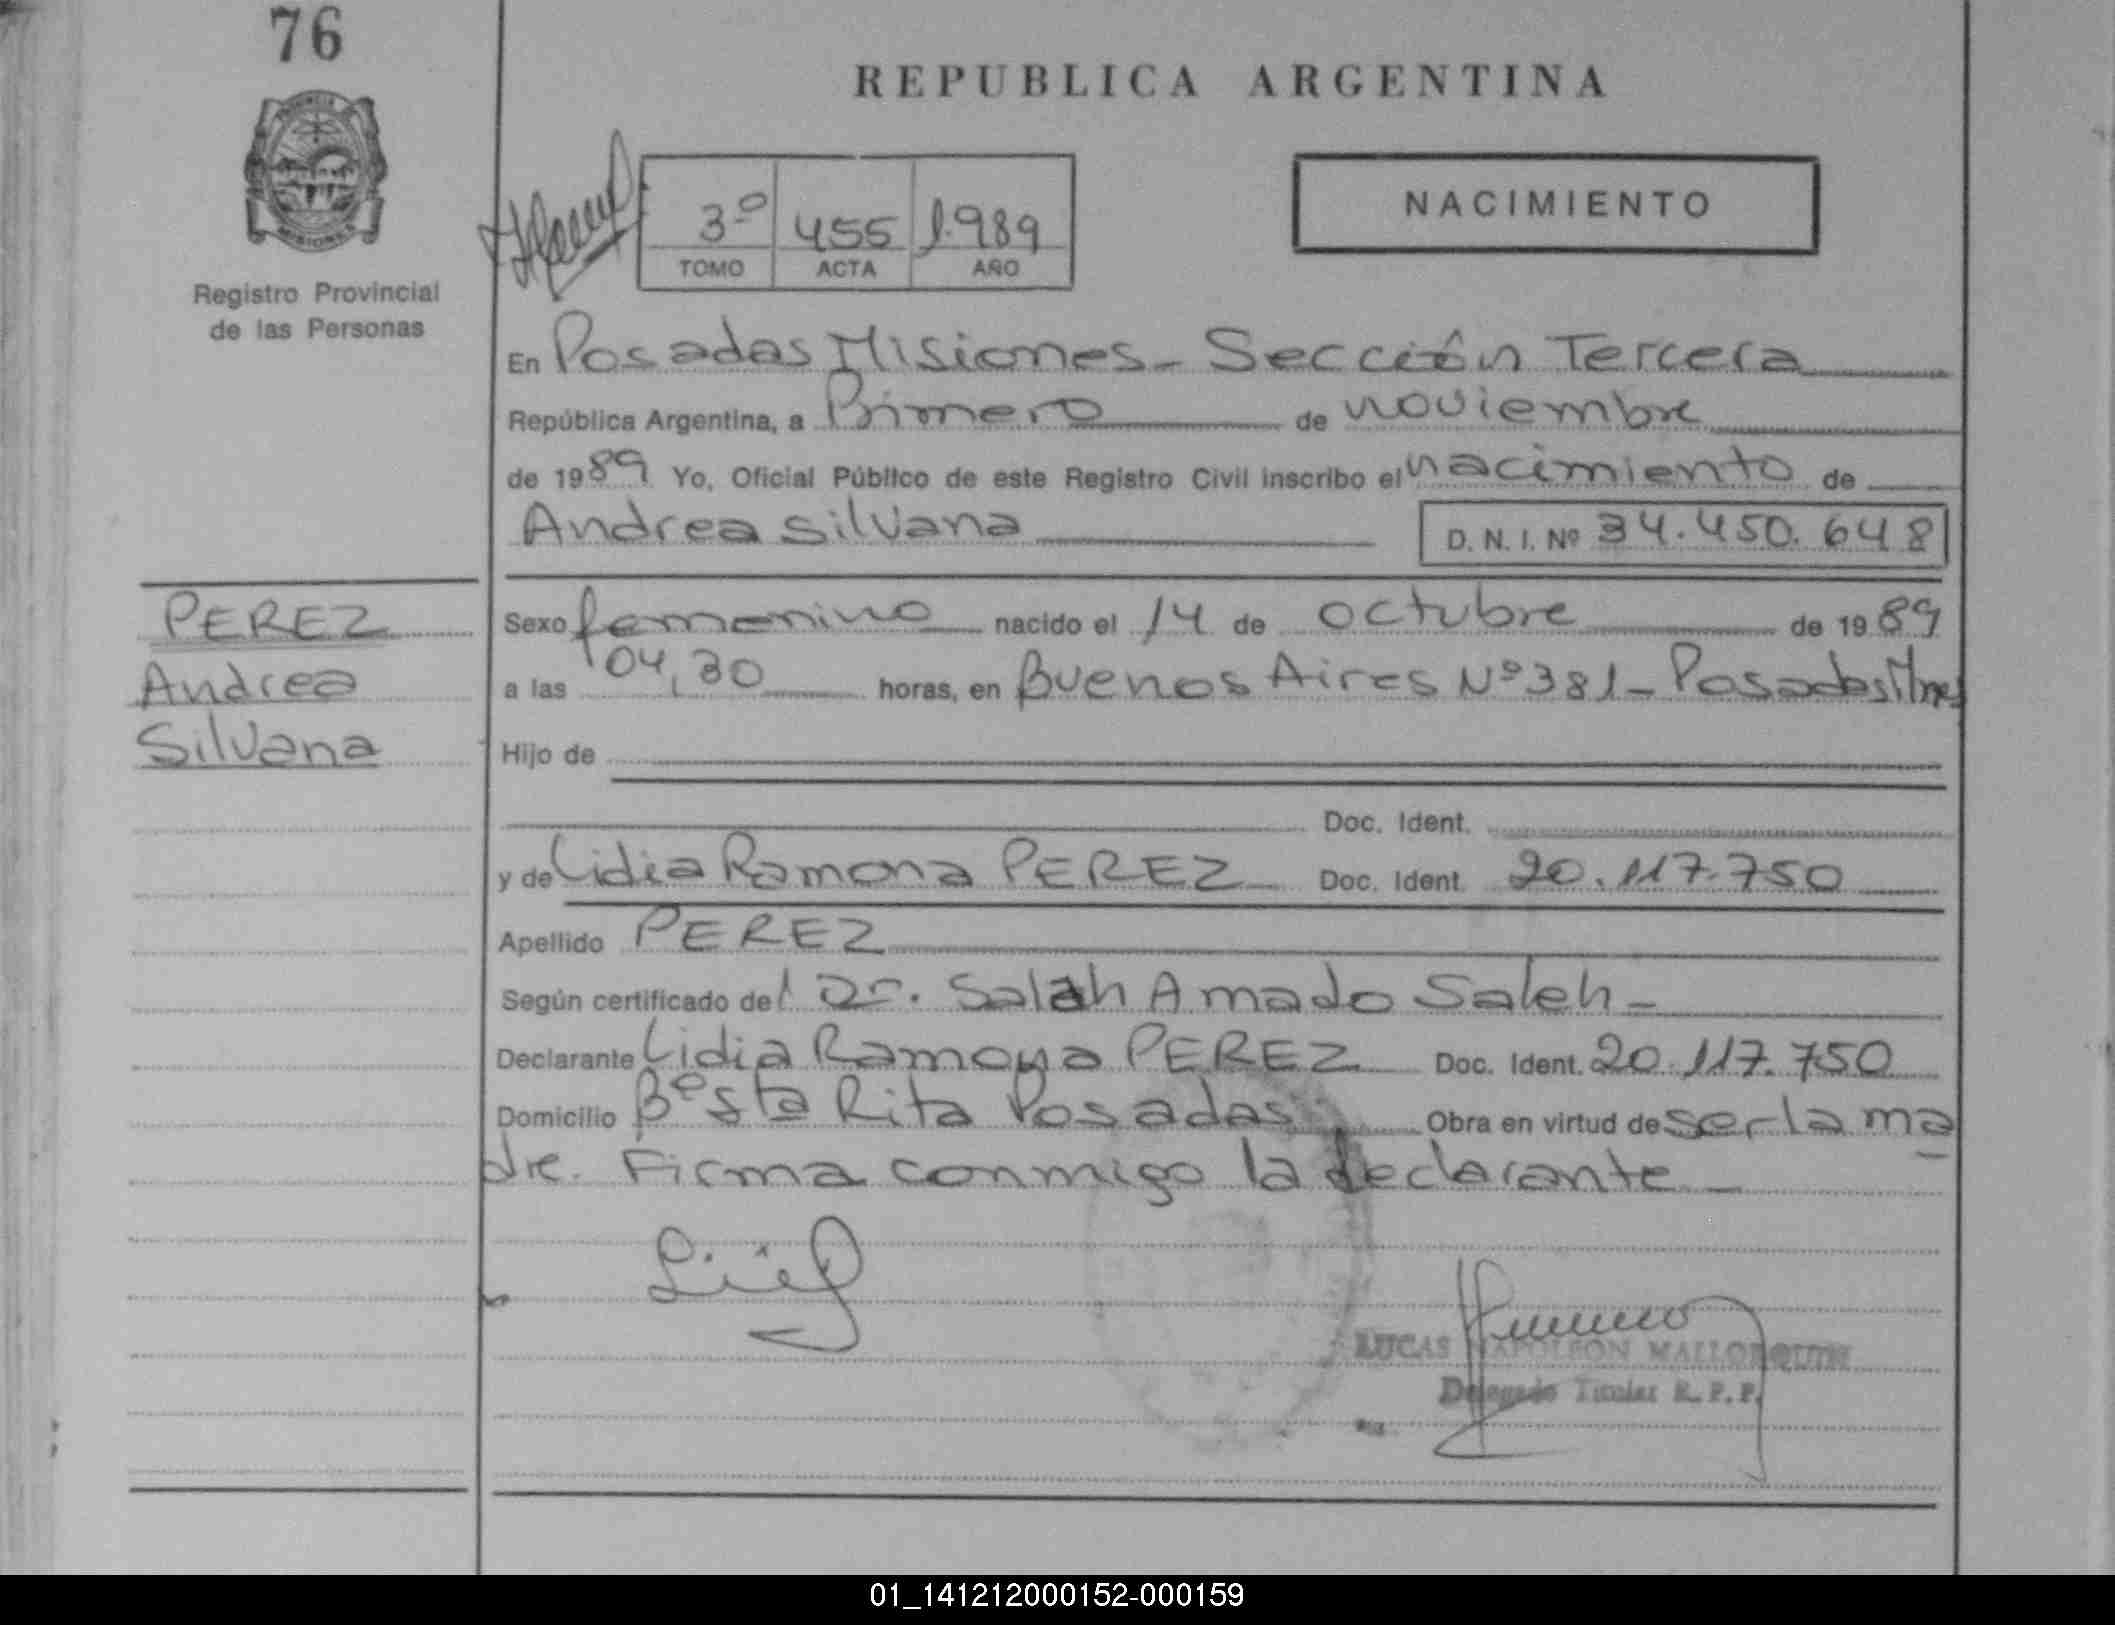 76
REPUBLICA ARGENTINA
PROVINCIA
MISIONES
Registro Provincial
de las Personas
3º 455 1.989
TOMO ACTA AÑO
NACIMIENTO
En Posadas Misiones - Sección Tercera
República Argentina, a Primero de noviembre
de 1989 Yo, Oficial Público de este Registro Civil inscribo el nacimiento de
Andrea Silvana D. N. I. Nº 34.450.648
PEREZ
Andrea
Silvana
Sexo femenino nacido el 14 de octubre de 1989
a las 04,30 horas, en Buenos Aires Nº 381 - Posadas Mnes
Hijo de
Doc. Ident.
y de Lidia Ramona PEREZ Doc. Ident. 20.117.750
Apellido PEREZ
Según certificado del Dr. Salah Amado Saleh -
Declarante Lidia Ramona PEREZ Doc. Ident. 20.117.750
Domicilio Bº Sta Rita Posadas Obra en virtud de ser la ma
dre. Firma conmigo la declarante -
LUCAS NAPOLEON MALLORQUIN
Delegado Titular R. P. P.
01_141212000152-000159